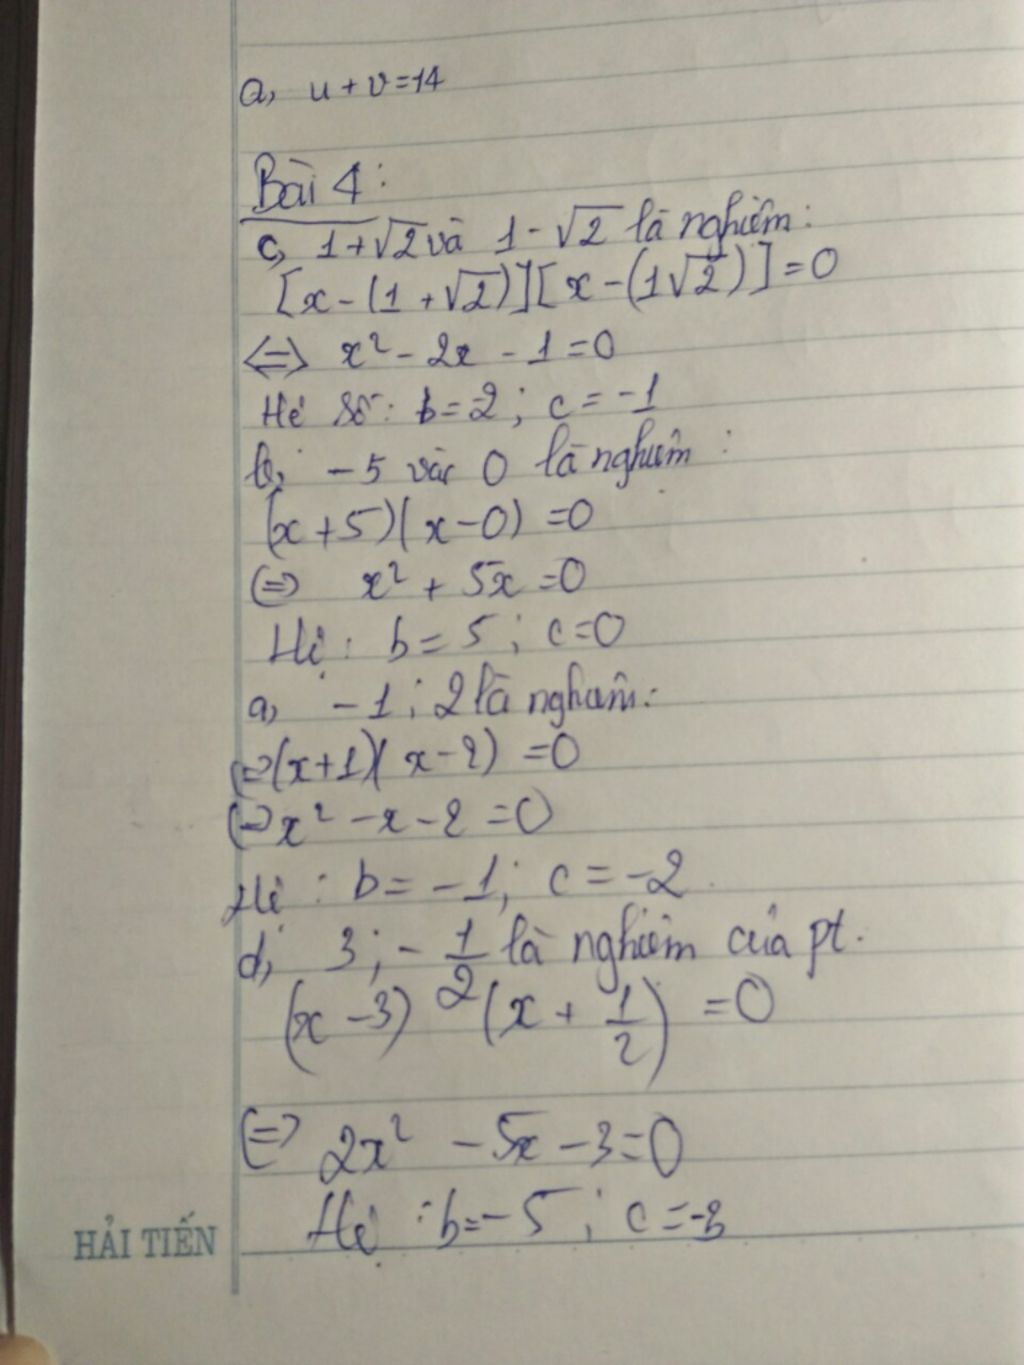 a, u + v = 14
Bài 4:
c, 1+√2 và 1-√2 là nghiệm:
[x-(1+√2)][x-(1√2)]=0
<=> x² - 2x - 1 = 0
Hệ số: b=-2; c = -1
b, -5 và 0 là nghiệm:
(x+5)(x-0) = 0
<=> x² + 5x = 0
Hệ: b = 5; c=0
a, -1; 2 là nghiệm:
<=> (x+1)(x-2) = 0
<=> x² - x - 2 = 0
Hệ: b = -1; c = -2
d, 3; -1/2 là nghiệm của pt.
(x-3) (x + 1/2) = 0
<=> 2x² - 5x - 3 = 0
Hệ: b = -5; c = -3
HẢI TIẾN